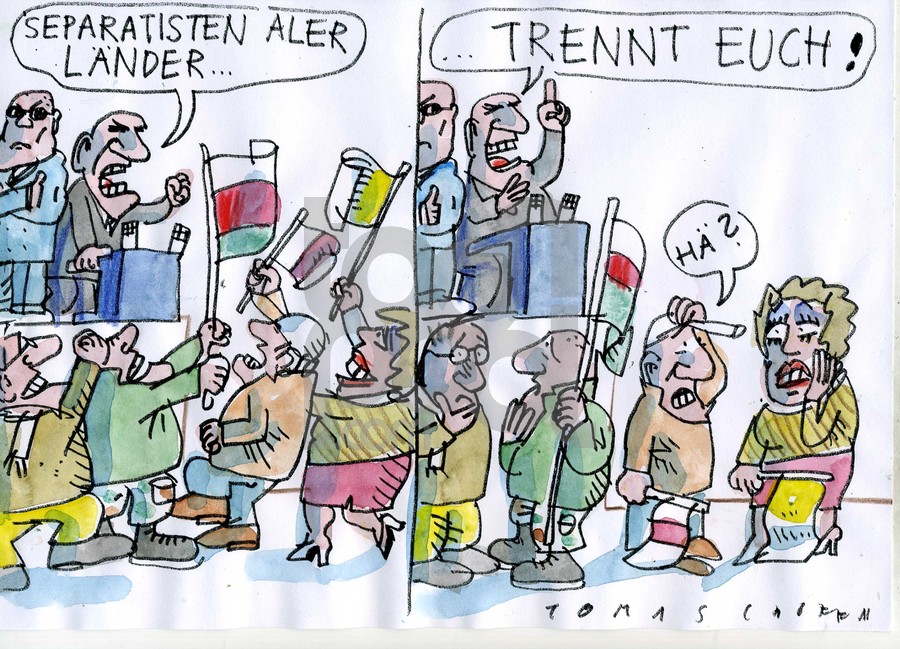 SEPARATISTEN ALER
LÄNDER...
... TRENNT EUCH!
HÄ?
TOMASCHOFF